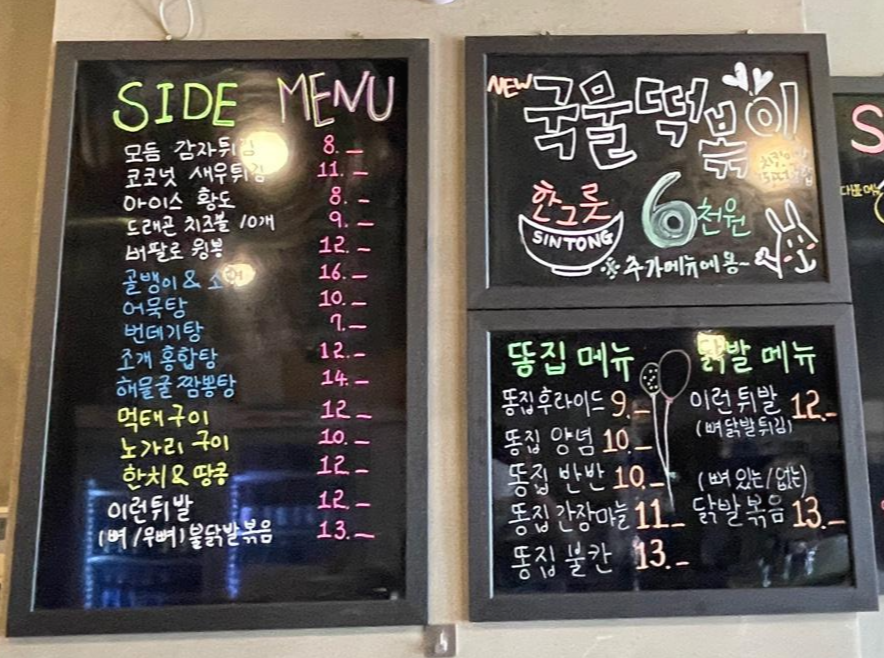 SIDE MENU
모듬 감자튀김 8.-
코코넛 새우튀김 11.-
아이스 황도 8.-
드래곤 치즈볼 10개 9.-
버팔로 윙봉 12.-
골뱅이 & 소면 16.-
어묵탕 10.-
번데기탕 7.-
조개 홍합탕 12.-
해물굴 짬뽕탕 14.-
먹태구이 12.-
노가리 구이 10.-
한치 & 땅콩 12.-
이런튀발 12.-
(뼈/무뼈)불닭발볶음 13.-
NEW 국물떡볶이
한그릇 6천원
SINTONG
추가메뉴에용~
똥집 메뉴
똥집후라이드 9.-
똥집 양념 10.-
똥집 반반 10.-
똥집 간장마늘 11.-
똥집 불칸 13.-
닭발 메뉴
이런 튀발 12.-
(뼈닭발튀김)
(뼈 있는/없는)
닭발볶음 13.-
S